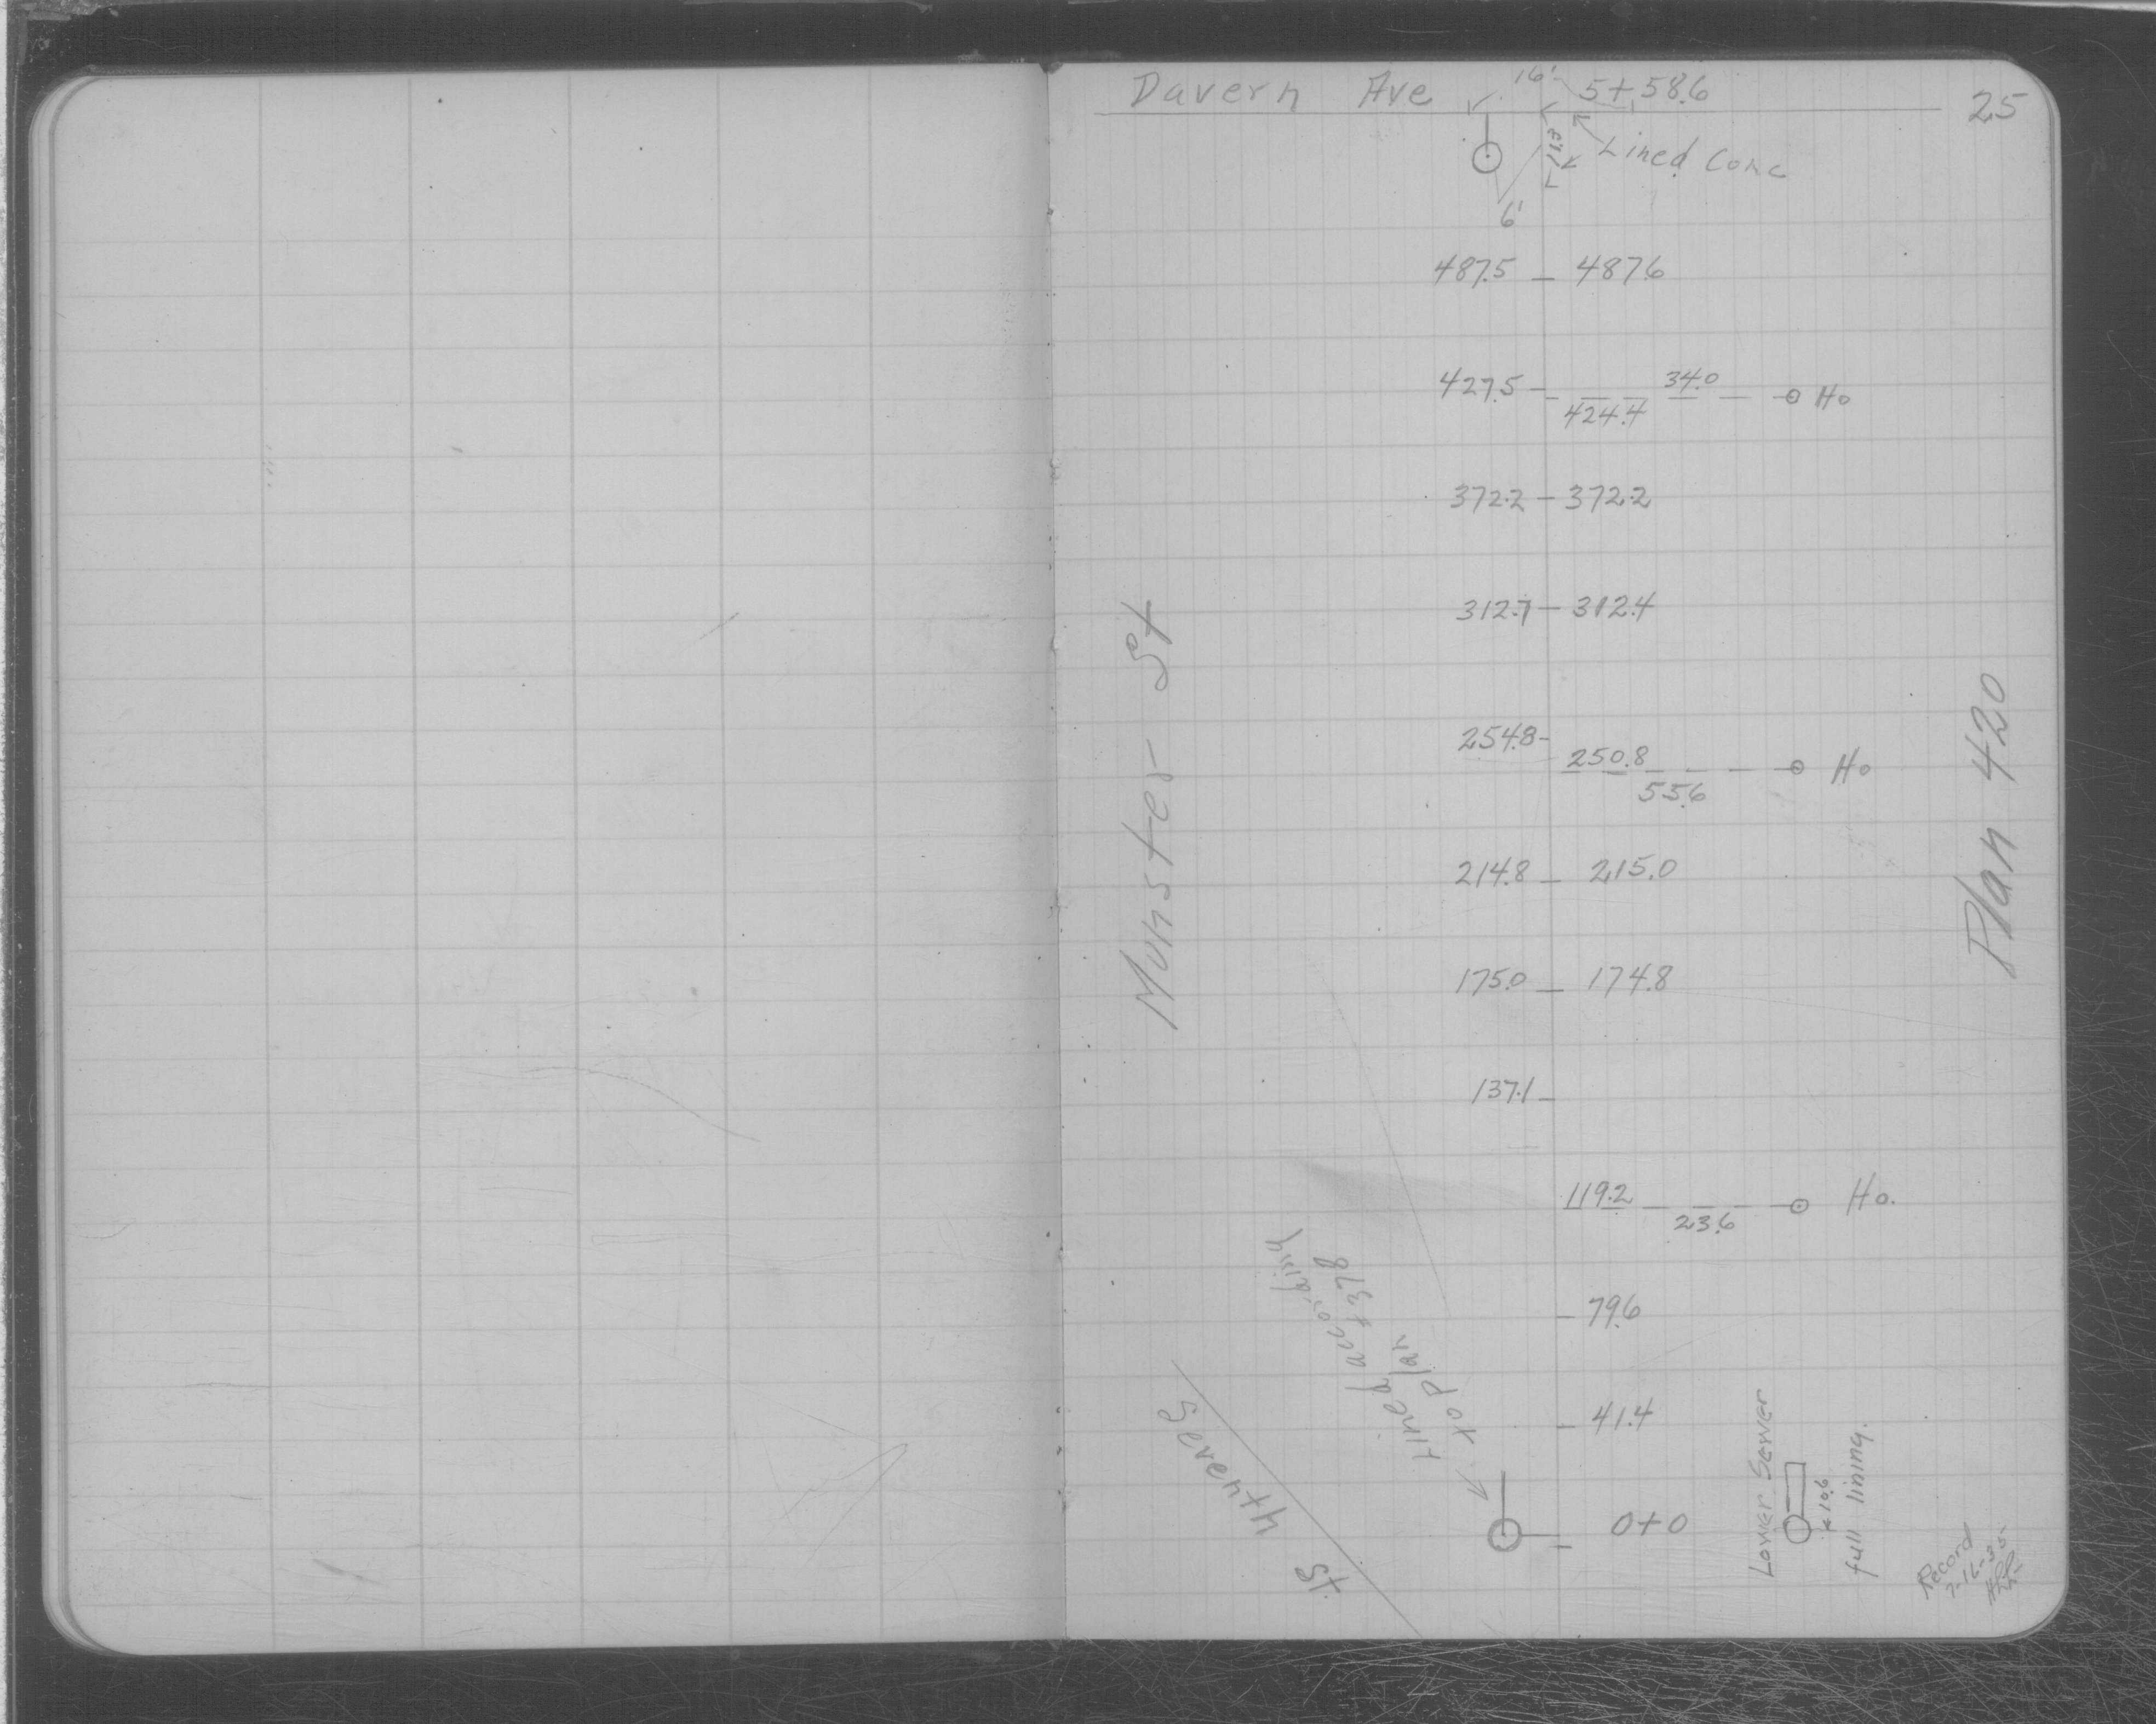 Davern Ave 16' 5+58.6
25
Lined Conc
6'
487.5 - 487.6
427.5 - 424.4 34.0 Ho
372.2 - 372.2
312.7 - 312.4
254.8 - 250.8 55.6 Ho
214.8 - 215.0
175.0 - 174.8
137.1 -
119.2 23.6 Ho.
- 79.6
- 41.4
0+0
Munster St
Plan 420
Lined according
to plan # 378
Seventh St.
Lower Sewer
10.6
full lining.
Record